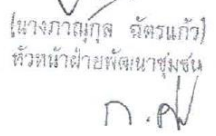 (นางภาณุกุล ฉัตรแก้ว)
หัวหน้าฝ่ายพัฒนาชุมชน